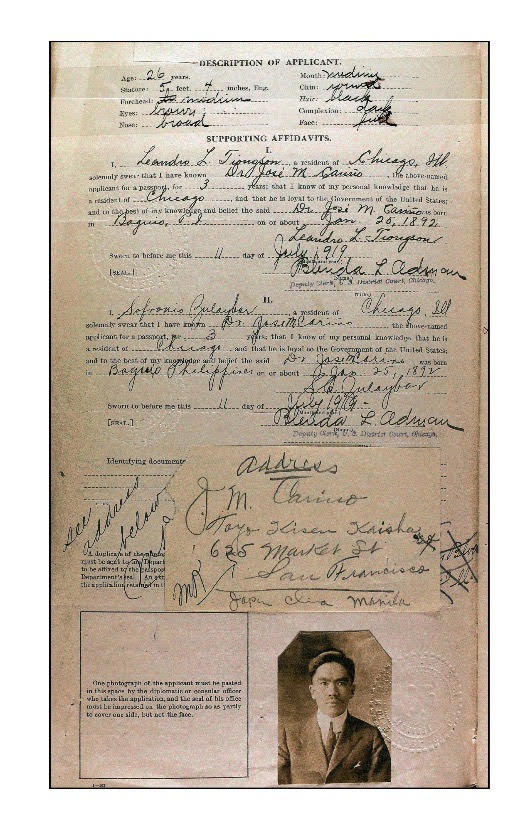 DESCRIPTION OF APPLICANT.
Age: 26 years.
Stature: 5 feet, 4 inches, Eng.
Forehead: medium
Eyes: brown
Nose: broad
Mouth: medium
Chin: round
Hair: black
Complexion: dark
Face: full
SUPPORTING AFFIDAVITS.
I.
I, Leandro L. Tiongson, a resident of Chicago, Ill.
solemnly swear that I have known Dr. José M. Carino, the above-named
applicant for a passport, for 3 years; that I know of my personal knowledge that he is
a resident of Chicago and that he is loyal to the Government of the United States;
and to the best of my knowledge and belief the said Dr. José M. Carino was born
in Baguio, P.I. on or about Jan. 25, 1892
Leandro L. Tiongson
Sworn to before me this 11 day of July 1919
[SEAL.]
Blenda L. Adman
Deputy Clerk, U. S. District Court, Chicago.
II.
I, a resident of Chicago, Ill
solemnly swear that I have known Dr. Jose M Carino the above-named
applicant for a passport, for 3 years; that I know of my personal knowledge that he is
a resident of Chicago and that he is loyal to the Government of the United States;
and to the best of my knowledge and belief the said Dr Jose M Carino was born
in Baguio Philippines on or about Jan 25, 1892
Sworn to before me this 11 day of July 1919
[SEAL.]
Blenda L. Adman
Deputy Clerk, U. S. District Court, Chicago.
Identifying documents
see address below
Address
J M. Carino
Toyo Kisen Kaisha
625 Market St
San Francisco
Manila
A duplicate of the
must be sent to the Depar
to be affixed by the passpo
Department's seal. An
the application retained
One photograph of the applicant must be pasted
in this space by the diplomatic or consular officer
who takes the application, and the seal of his office
must be impressed on the photograph so as partly
to cover one side, but not the face.